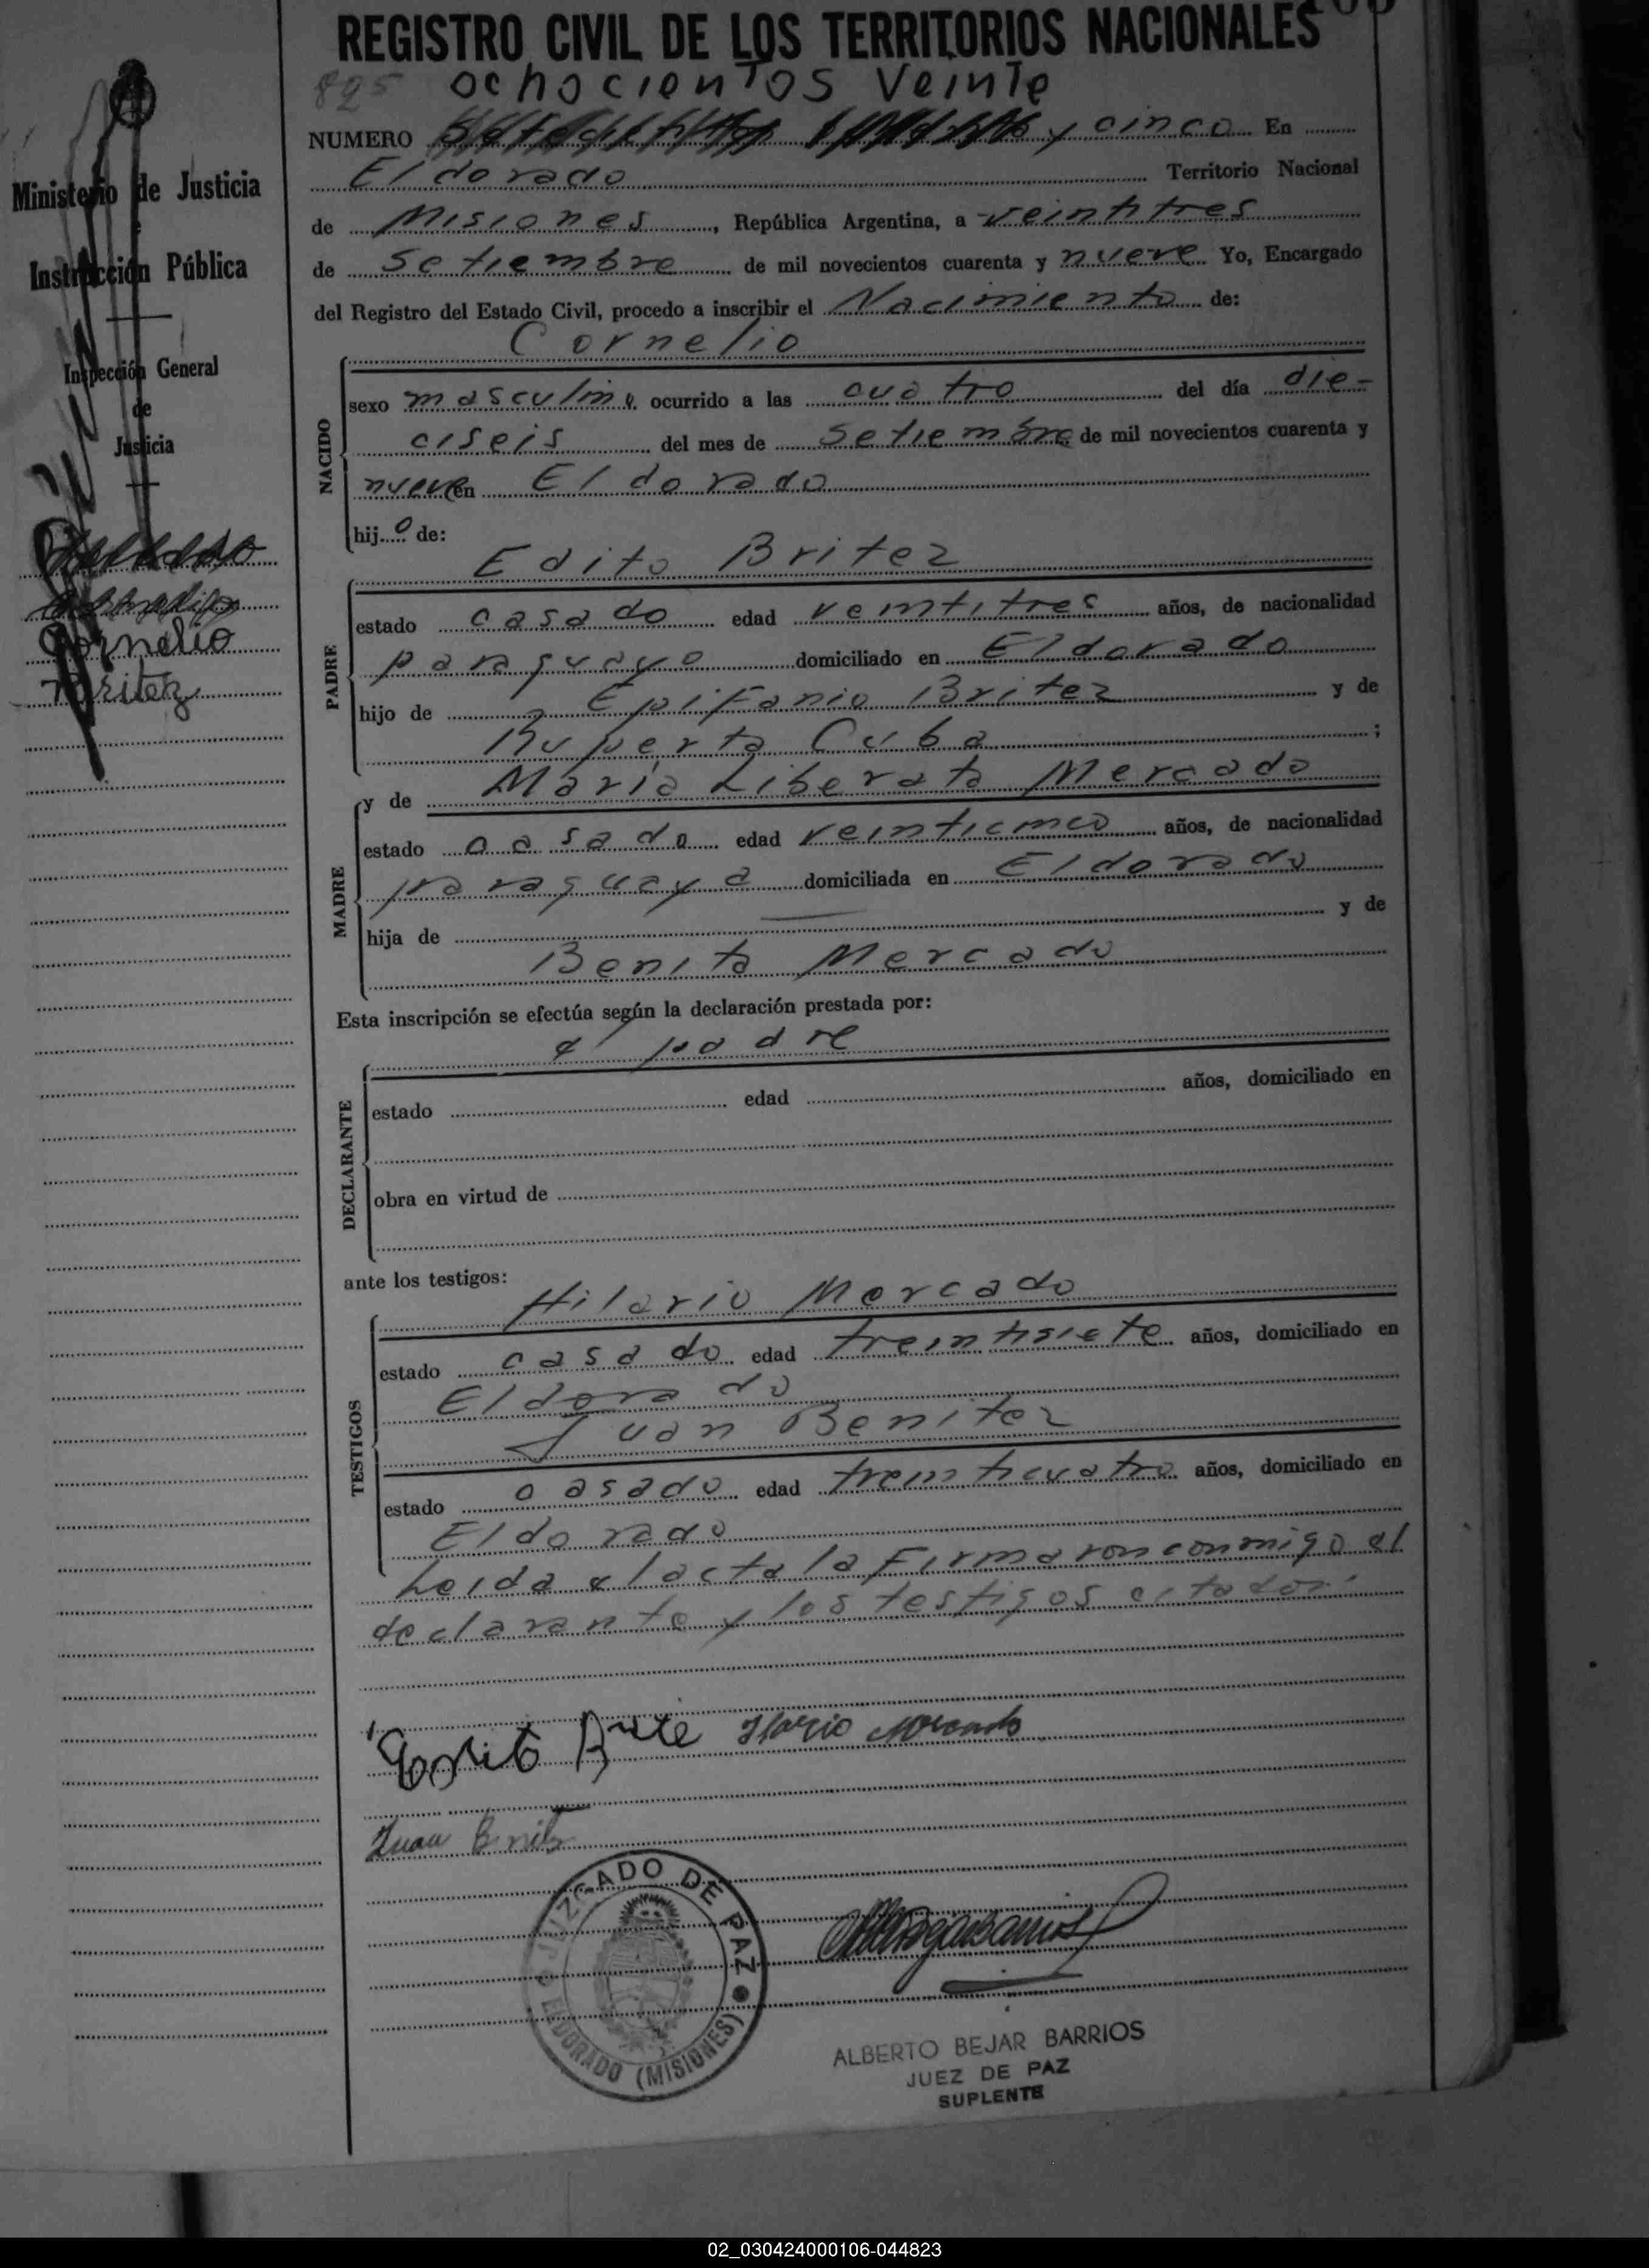 REGISTRO CIVIL DE LOS TERRITORIOS NACIONALES
825 ochocientos veinte
NUMERO y cinco En
Eldorado Territorio Nacional
de Misiones, República Argentina, a veintitres
de Setiembre de mil novecientos cuarenta y nueve Yo, Encargado
del Registro del Estado Civil, procedo a inscribir el Nacimiento de:
Cornelio
NACIDO
sexo masculino ocurrido a las cuatro del día die-
ciseis del mes de Setiembre de mil novecientos cuarenta y
nueve en Eldorado
hij o de:
Edito Britez
PADRE
estado casado edad veintitres años, de nacionalidad
paraguayo domiciliado en Eldorado
hijo de Epifanio Britez y de
Ruperta Cuba ;
y de Maria Liberata Mercado
MADRE
estado casado edad veinticinco años, de nacionalidad
paraguaya domiciliada en Eldorado
hija de — y de
Benita Mercado
Esta inscripción se efectúa según la declaración prestada por:
el padre
DECLARANTE
estado edad años, domiciliado en
obra en virtud de
ante los testigos:
Hilario Mercado
TESTIGOS
estado casado edad treintisiete años, domiciliado en
Eldorado
Juan Benitez
estado casado edad treinticuatro años, domiciliado en
Eldorado
Leida el acta la Firmaron conmigo el
declarante y los testigos citados.
Ilario Mercado
Juan
JUZGADO DE PAZ
ELDORADO (MISIONES)
ALBERTO BEJAR BARRIOS
JUEZ DE PAZ
SUPLENTE
Ministerio de Justicia
e
Instrucción Pública
Inspección General
de
Justicia
Cornelio
Britez
02_030424000106-044823